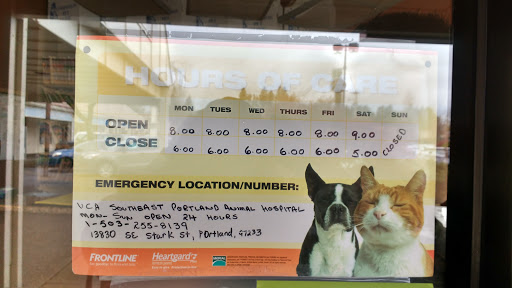 HOURS OF CARE
MON TUES WED THURS FRI SAT SUN
OPEN 8.00 8.00 8.00 8.00 8.00 9.00 CLOSED
CLOSE 6.00 6.00 6.00 6.00 6.00 5.00
EMERGENCY LOCATION/NUMBER:
VCA SOUTHEAST PORTLAND ANIMAL HOSPITAL
MON-SUN OPEN 24 HOURS
1-503-255-8139
13830 SE Stark St, Portland, 97233
FRONTLINE Heartgard